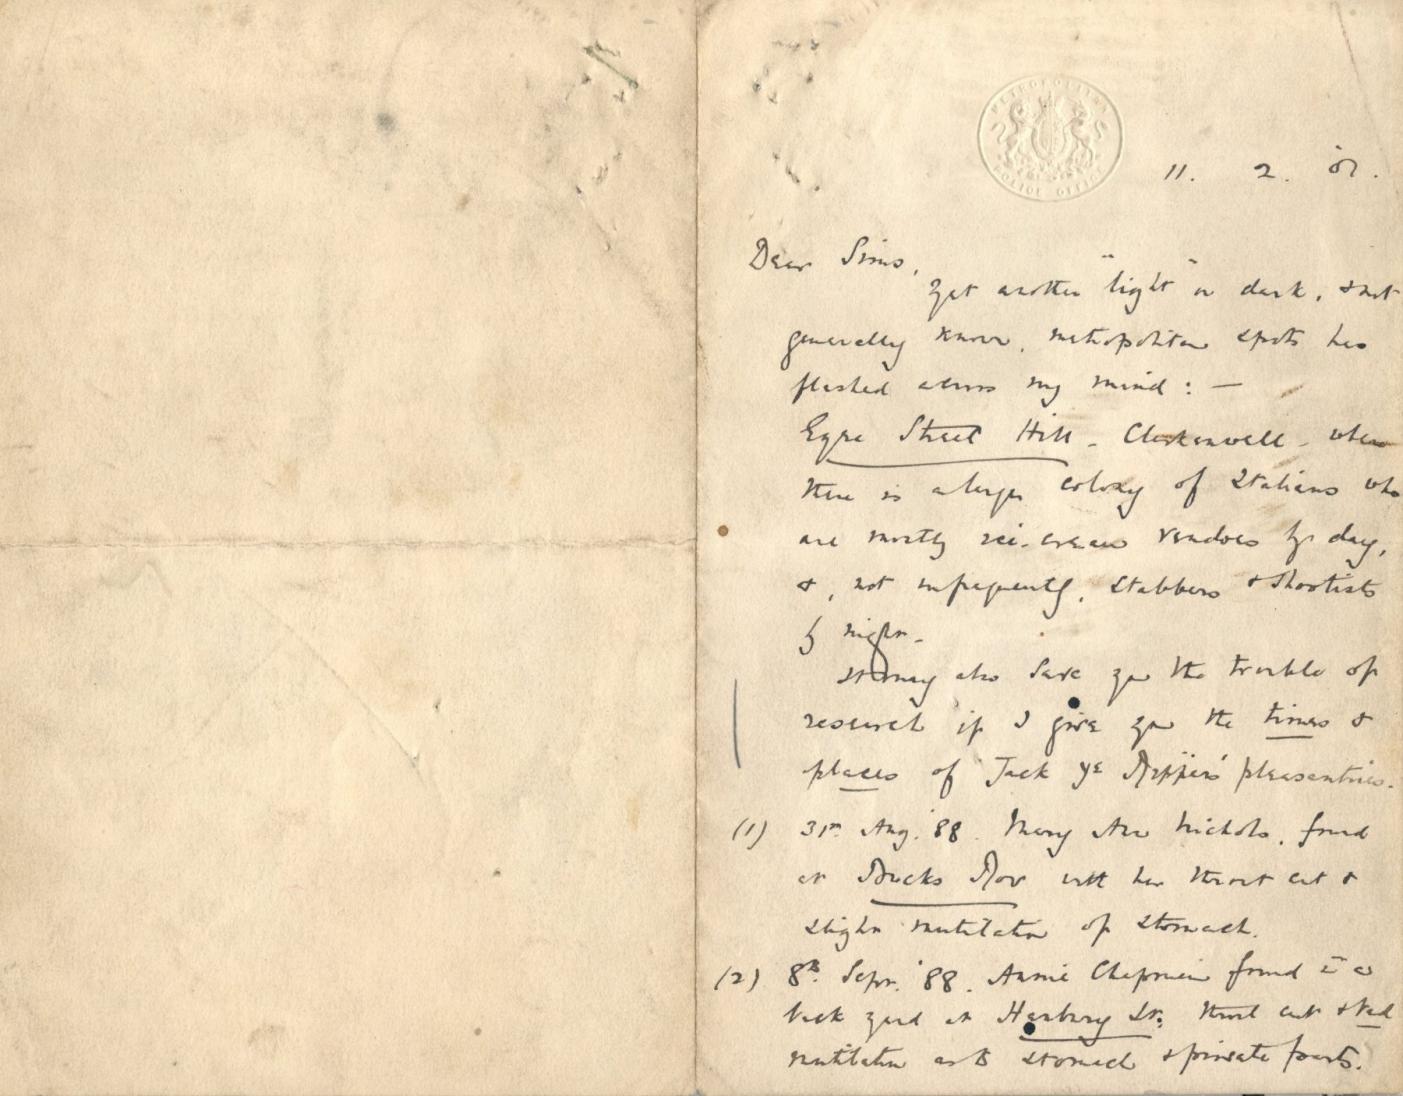 METROPOLITAN
POLICE OFFICE
11. 2. 07.
Dear Sims,
Yet another "light" on dark, & not
generally known, metropolitan spots has
flashed across my mind : —
Eyre Street Hill - Clerkenwell - where
there is a large colony of Italians who
are mostly ice-cream vendors by day,
&, not infrequently, stabbers & shootists
by night.
It may also save you the trouble of
research if I give you the times &
places of Jack ye Ripper's pleasantries.
(1) 31st Aug. '88. Mary Ann Nichols, found
at Bucks Row with her throat cut &
slight mutilation of stomach.
(2) 8th Sept. '88. Annie Chapman found in a
back yard at Hanbury St; throat cut & bad
mutilation as to stomach & private parts.